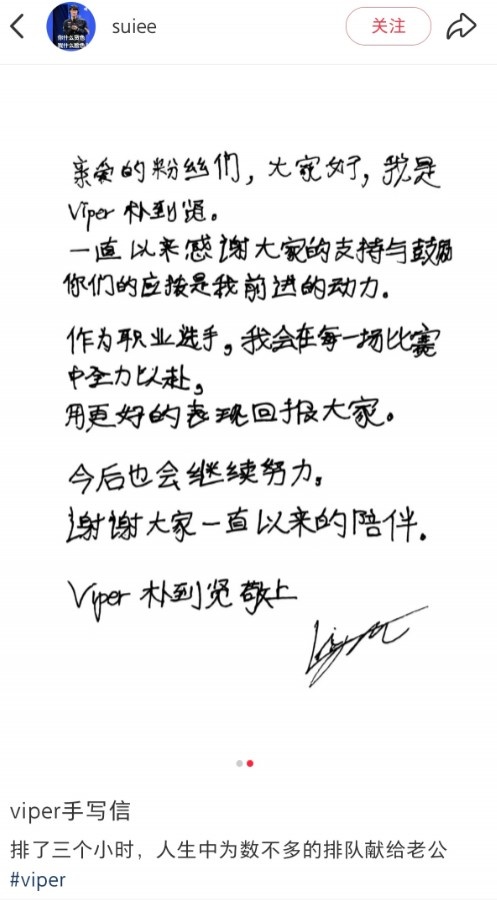 suiee
关注
亲爱的粉丝们，大家好，我是
Viper 朴到贤。
一直以来感谢大家的支持与鼓励
你们的应援是我前进的动力。
作为职业选手，我会在每一场比赛
中全力以赴，
用更好的表现回报大家。
今后也会继续努力。
谢谢大家一直以来的陪伴。
Viper 朴到贤 敬上
viper手写信
排了三个小时，人生中为数不多的排队献给老公
#viper